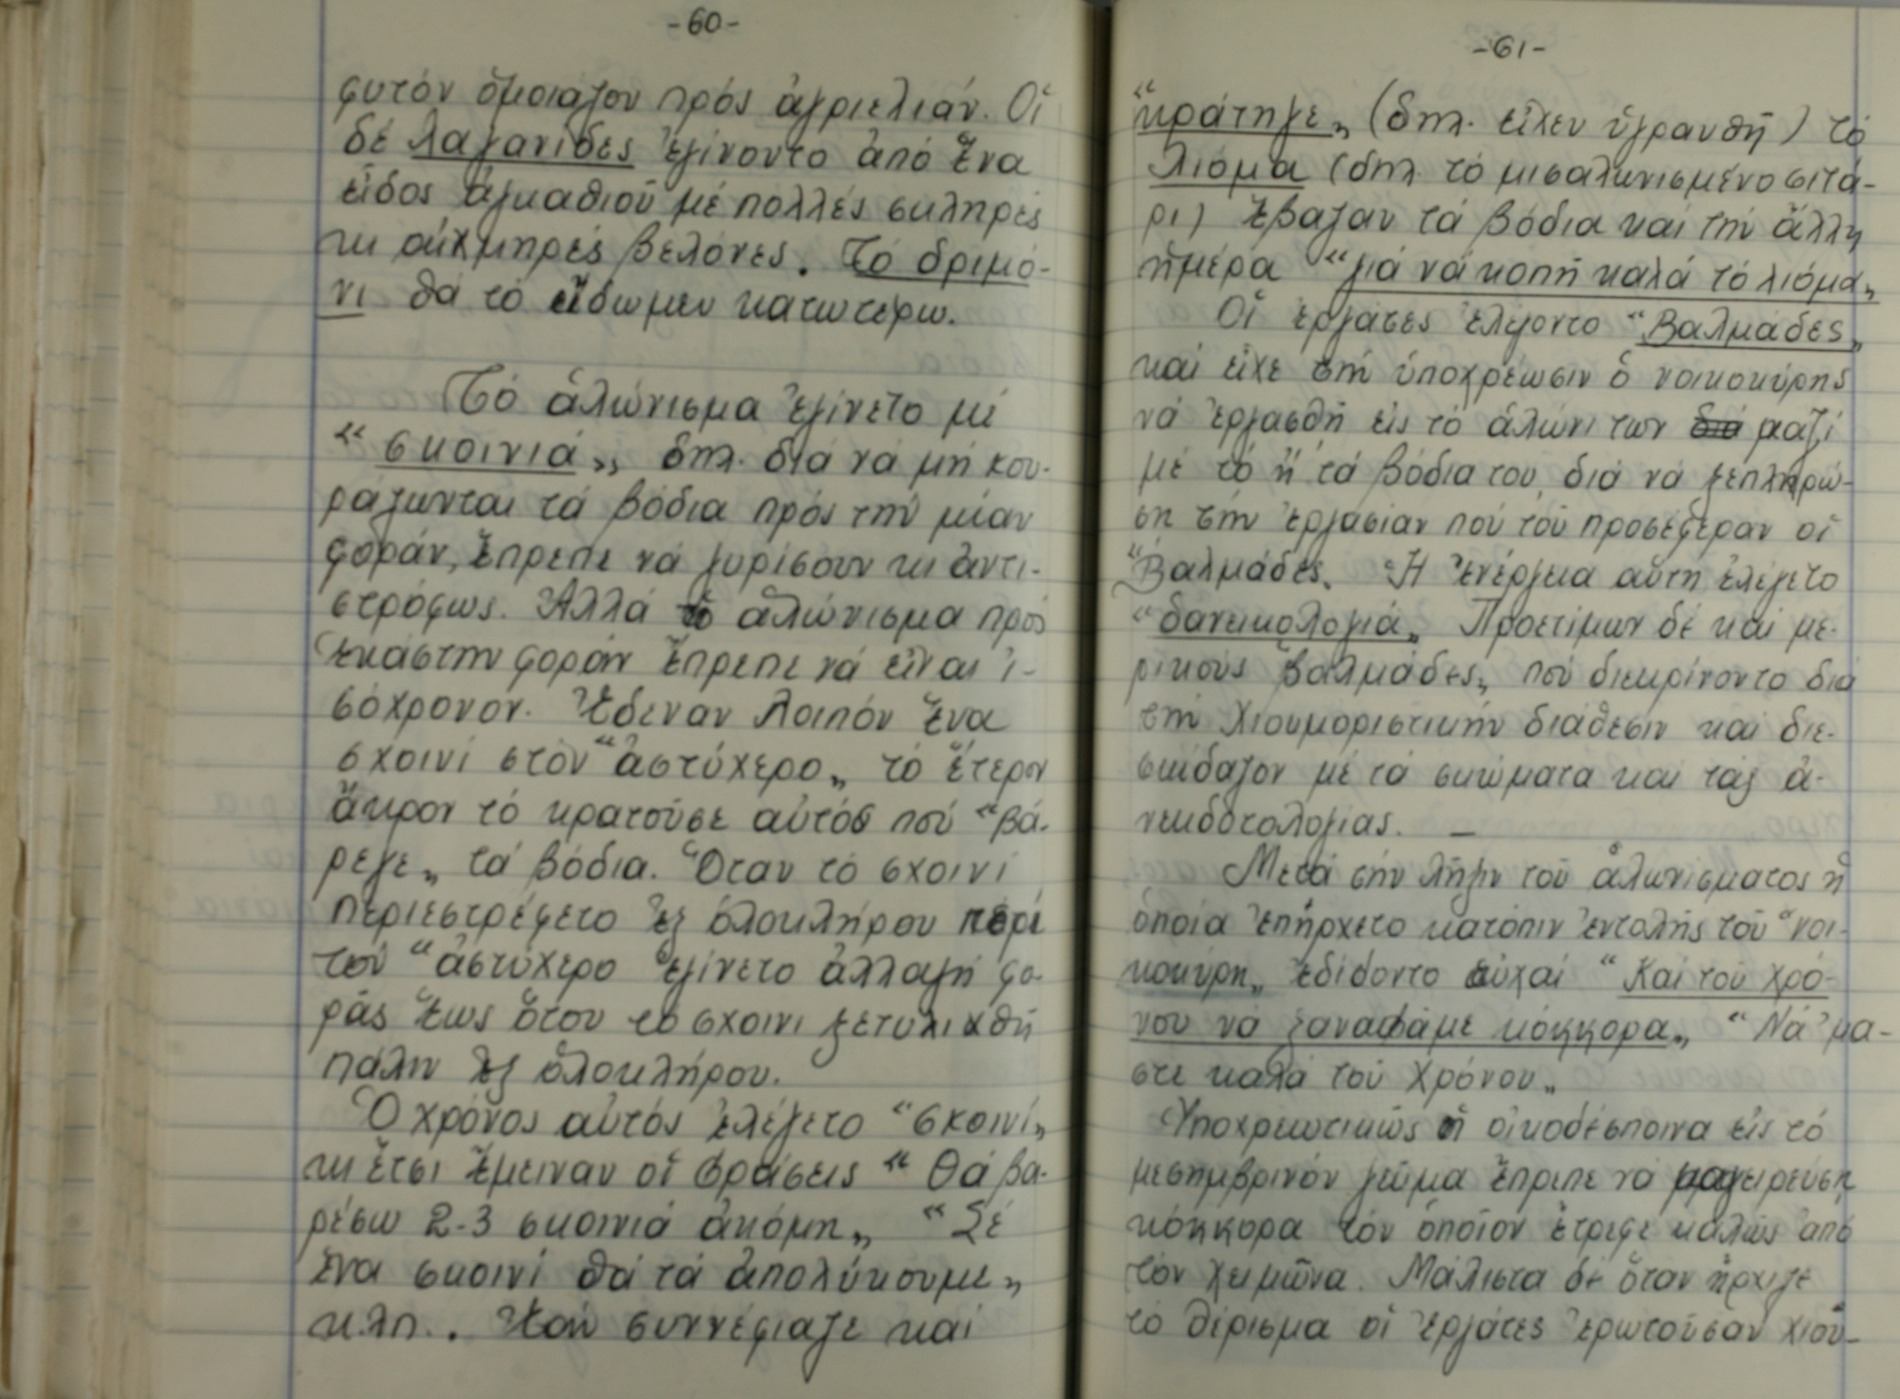 -60-
φυτόν ὁμοιάζον πρός ἀγριελιάν. Οἱ
δέ λαζανίδες ἐγίνοντο ἀπό ἕνα
εἶδος ἀγκαθιοῦ μέ πολλές σκληρές
κι αἰχμηρές βελόνες. Τό δριμό-
νι θά τό εἴδωμεν κατωτέρω.
Τό ἁλώνισμα ἐγίνετο μέ
"σκοινιά„ δηλ. διά νά μή κου-
ράζωνται τά βόδια πρός τήν μίαν
φοράν, ἔπρεπε νά γυρίσουν κι ἀντι-
στρόφως. Ἀλλά τό ἁλώνισμα πρός
ἑκάστην φοράν ἔπρεπε νά εἶναι ἰ-
σόχρονον. Ἔδεναν λοιπόν ἕνα
σχοινί στόν "ἀστύχερο„ τό ἕτερον
ἄκρον τό κρατοῦσε αὐτός πού "βά-
ρεγε„ τά βόδια. Ὅταν τό σχοινί
περιεστρέφετο ἐξ ὁλοκλήρου περί
τόν "ἀστύχερο ἐγίνετο ἀλλαγή φο-
ρᾶς ἕως ὅτου τό σχοινί ξετυλιχθῆ
πάλιν ἐξ ὁλοκλήρου.
Ὁ χρόνος αὐτός ἐλέγετο "σκοινί„
κι ἔτσι ἔμειναν οἱ φράσεις "Θά βα-
ρέσω 2-3 σκοινιά ἀκόμη„ "Σέ
ἕνα σκοινί θά τά ἀπολύκουμε„
κ.λπ.. Ἐάν συννέφιαζε καί
-61-
"κράτηγε„ (δηλ. εἶχεν ὑγρανθῆ) τό
λιόμα (δηλ τό μισαλωνισμένο σιτά-
ρι) ἔβαζαν τά βόδια καί τήν ἄλλη
ἡμέρα "γιά νά κοπῆ καλά τό λιόμα„
Οἱ ἐργάτες ἐλέγοντο "Βαλμάδες„
καί εἶχε τήν ὑποχρέωσιν ὁ νοικοκύρης
νά ἐργασθῆ εἰς τό ἁλώνι των διά μαζί
μέ τό ἤ τά βόδια του, διά νά ξεπληρώ-
ση τήν ἐργασίαν πού τοῦ προσέφεραν οἱ
"Βαλμάδες„ Ἡ ἐνέργεια αὕτη ἐλέγετο
"δανεικολογιά„ Προετίμων δέ καί με-
ρικούς βαλμάδες„ πού διεκρίνοντο διά
τήν χιουμοριστικήν διάθεσιν καί διε-
σκέδαζον μέ τά σκώματα καί τάς ἀ-
νεκδοτολογίας. –
Μετά τήν λῆξιν τοῦ ἁλωνίσματος ἡ
ὁποία ἐπήρχετο κατόπιν ἐντολῆς τοῦ "νοι-
κοκύρη„ ἐδίδοντο εὐχαί "Καί τοῦ χρό-
νου νά ξαναφάμε κόκκορα„ "Νά 'μα-
στε καλά τοῦ χρόνου„
Ὑποχρεωτικῶς ἡ οἰκοδέσποινα εἰς τό
μεσημβρινόν γεῦμα ἔπρεπε νά μαγειρεύση
κόκκορα τόν ὁποῖον ἔτρεφε καλῶς ἀπό
τόν χειμῶνα. Μάλιστα δέ ὅταν ἤρχιζε
τό θέρισμα οἱ ἐργάτες ἐρωτοῦσαν χιου-